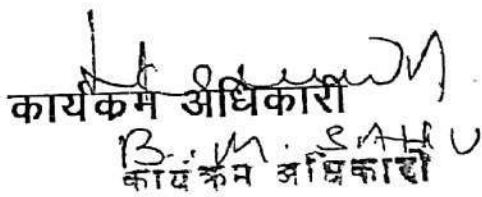 कार्यक्रम अधिकारी
B. M. SAHU
कार्यक्रम अधिकारी